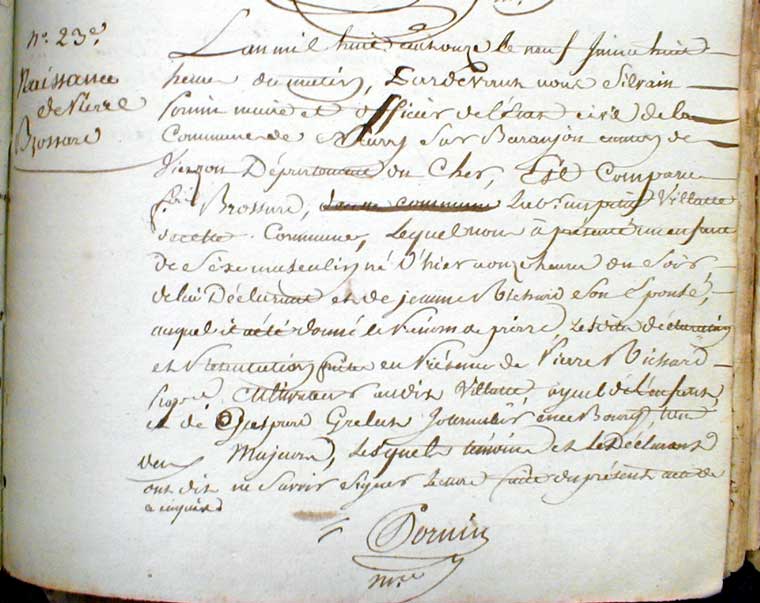 n.° 23.e
Naissance
de Pierre
Brossard
L'an mil huit cent onze le neuf Juin a huit
heures du matin, Pardevant nous Silvain
Pornin maire et officier de l'état civil de la
Commune de sur Baranjon canton de
Vierzon Département du Cher, Est Comparu
Brossard, au petit Villatte
de cette Commune, Lequel nous à présenté un enfant
de Séxe masculin né D'hier a onze heures du Soir
de lui Déclarant et de jeanne Richard Son Epouse,
auquel il a été donné le Prénom de pierre Lesdites déclarations
et Présentation faites en Présence de Pierre Richard
cultivateur audit Villatte, ayeul de l'enfant
et de Gaspard Grelut Journalier en ce Bourg, tous
deux Majeurs, Lesquels témoins et le Déclarant
ont dit ne Savoir Signer Lecture faite du présent acte de
ce enquis
Pornin
m.re